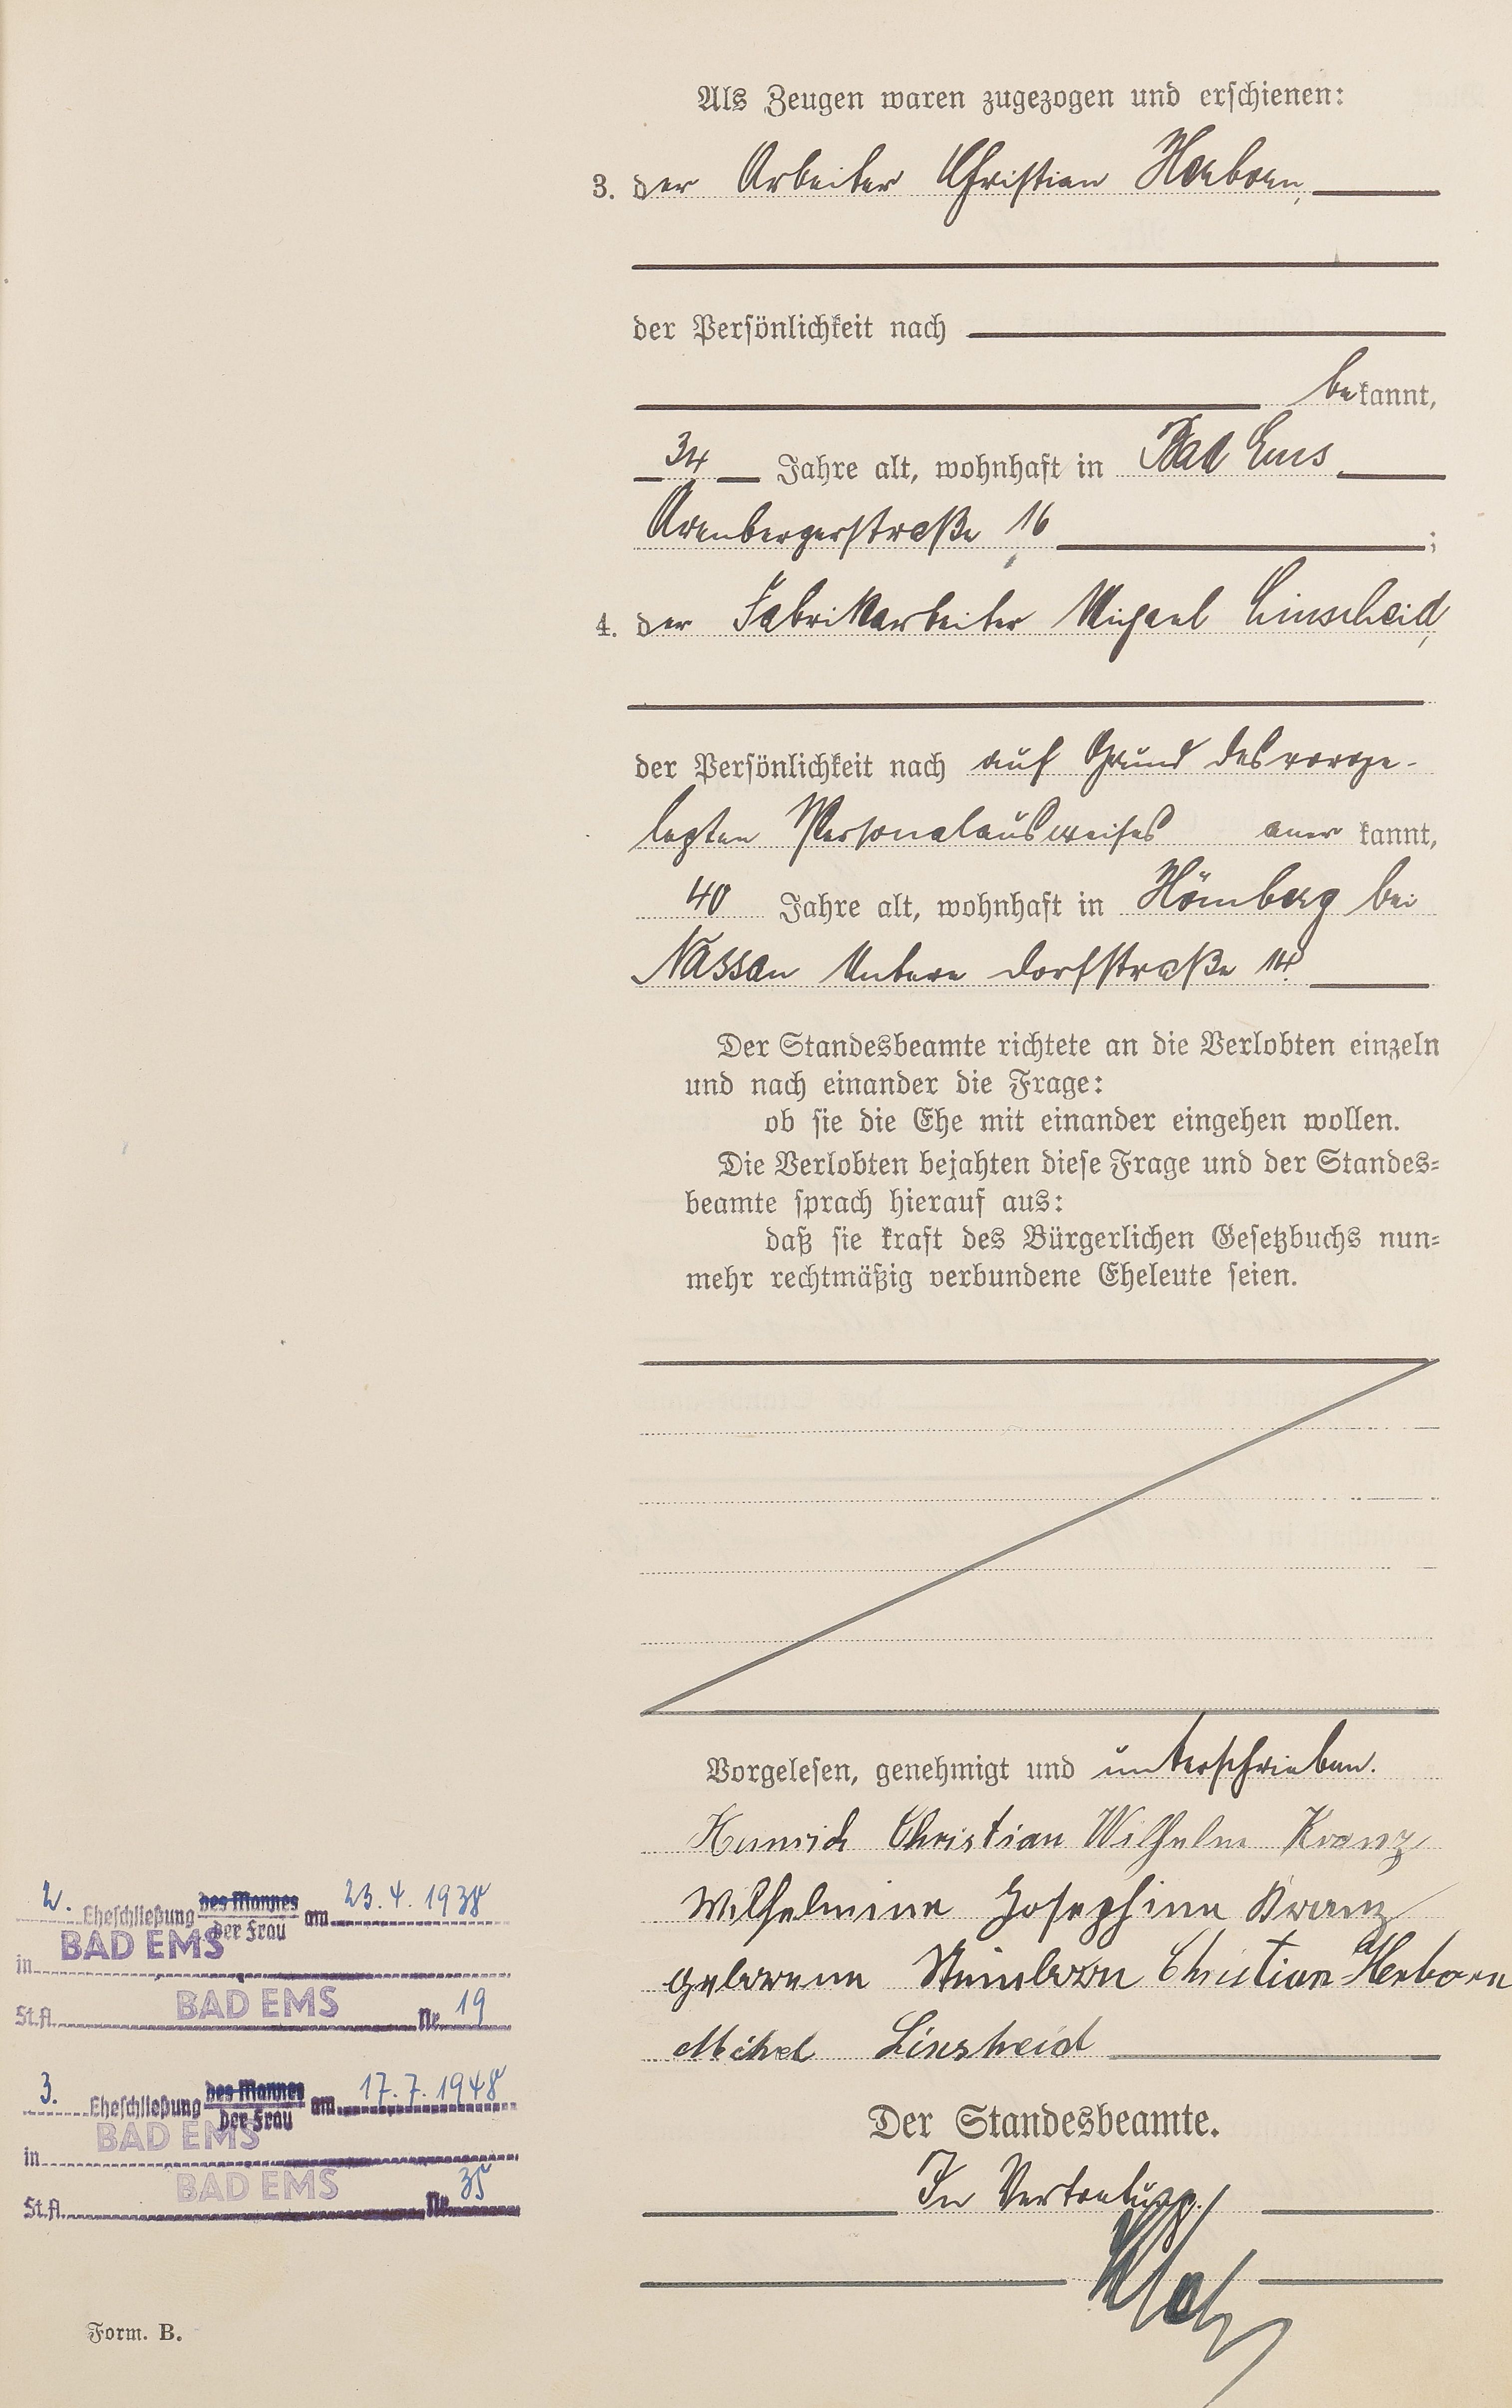 Als Zeugen waren zugezogen und erschienen:
3. der Arbeiter Christian Herborn,
der Persönlichkeit nach
bekannt,
34 Jahre alt, wohnhaft in Bad Ems
Arenbergerstraße 16 ;
4. der Fabrikarbeiter Michael Linscheid,
der Persönlichkeit nach auf Grund des vorge-
legten Personalausweises anerkannt,
40 Jahre alt, wohnhaft in Hömberg bei
Nassau Untere Dorfstraße 14.
Der Standesbeamte richtete an die Verlobten einzeln
und nach einander die Frage:
ob sie die Ehe mit einander eingehen wollen.
Die Verlobten bejahten diese Frage und der Standes-
beamte sprach hierauf aus:
daß sie kraft des Bürgerlichen Gesetzbuchs nun-
mehr rechtmäßig verbundene Eheleute seien.
Vorgelesen, genehmigt und unterschrieben.
Heinrich Christian Wilhelm Kranz
Wilhelmine Josephine Kranz
geborene Steinborn Christian Herborn
Michel Linscheid
Der Standesbeamte.
In Vertretung.
2. Eheschließung des Mannes der Frau am 23.4.1938
in BAD EMS
St.A. BAD EMS Nr. 19
3. Eheschließung des Mannes der Frau am 17.7.1948
in BAD EMS
St.A. BAD EMS Nr. 35
Form. B.